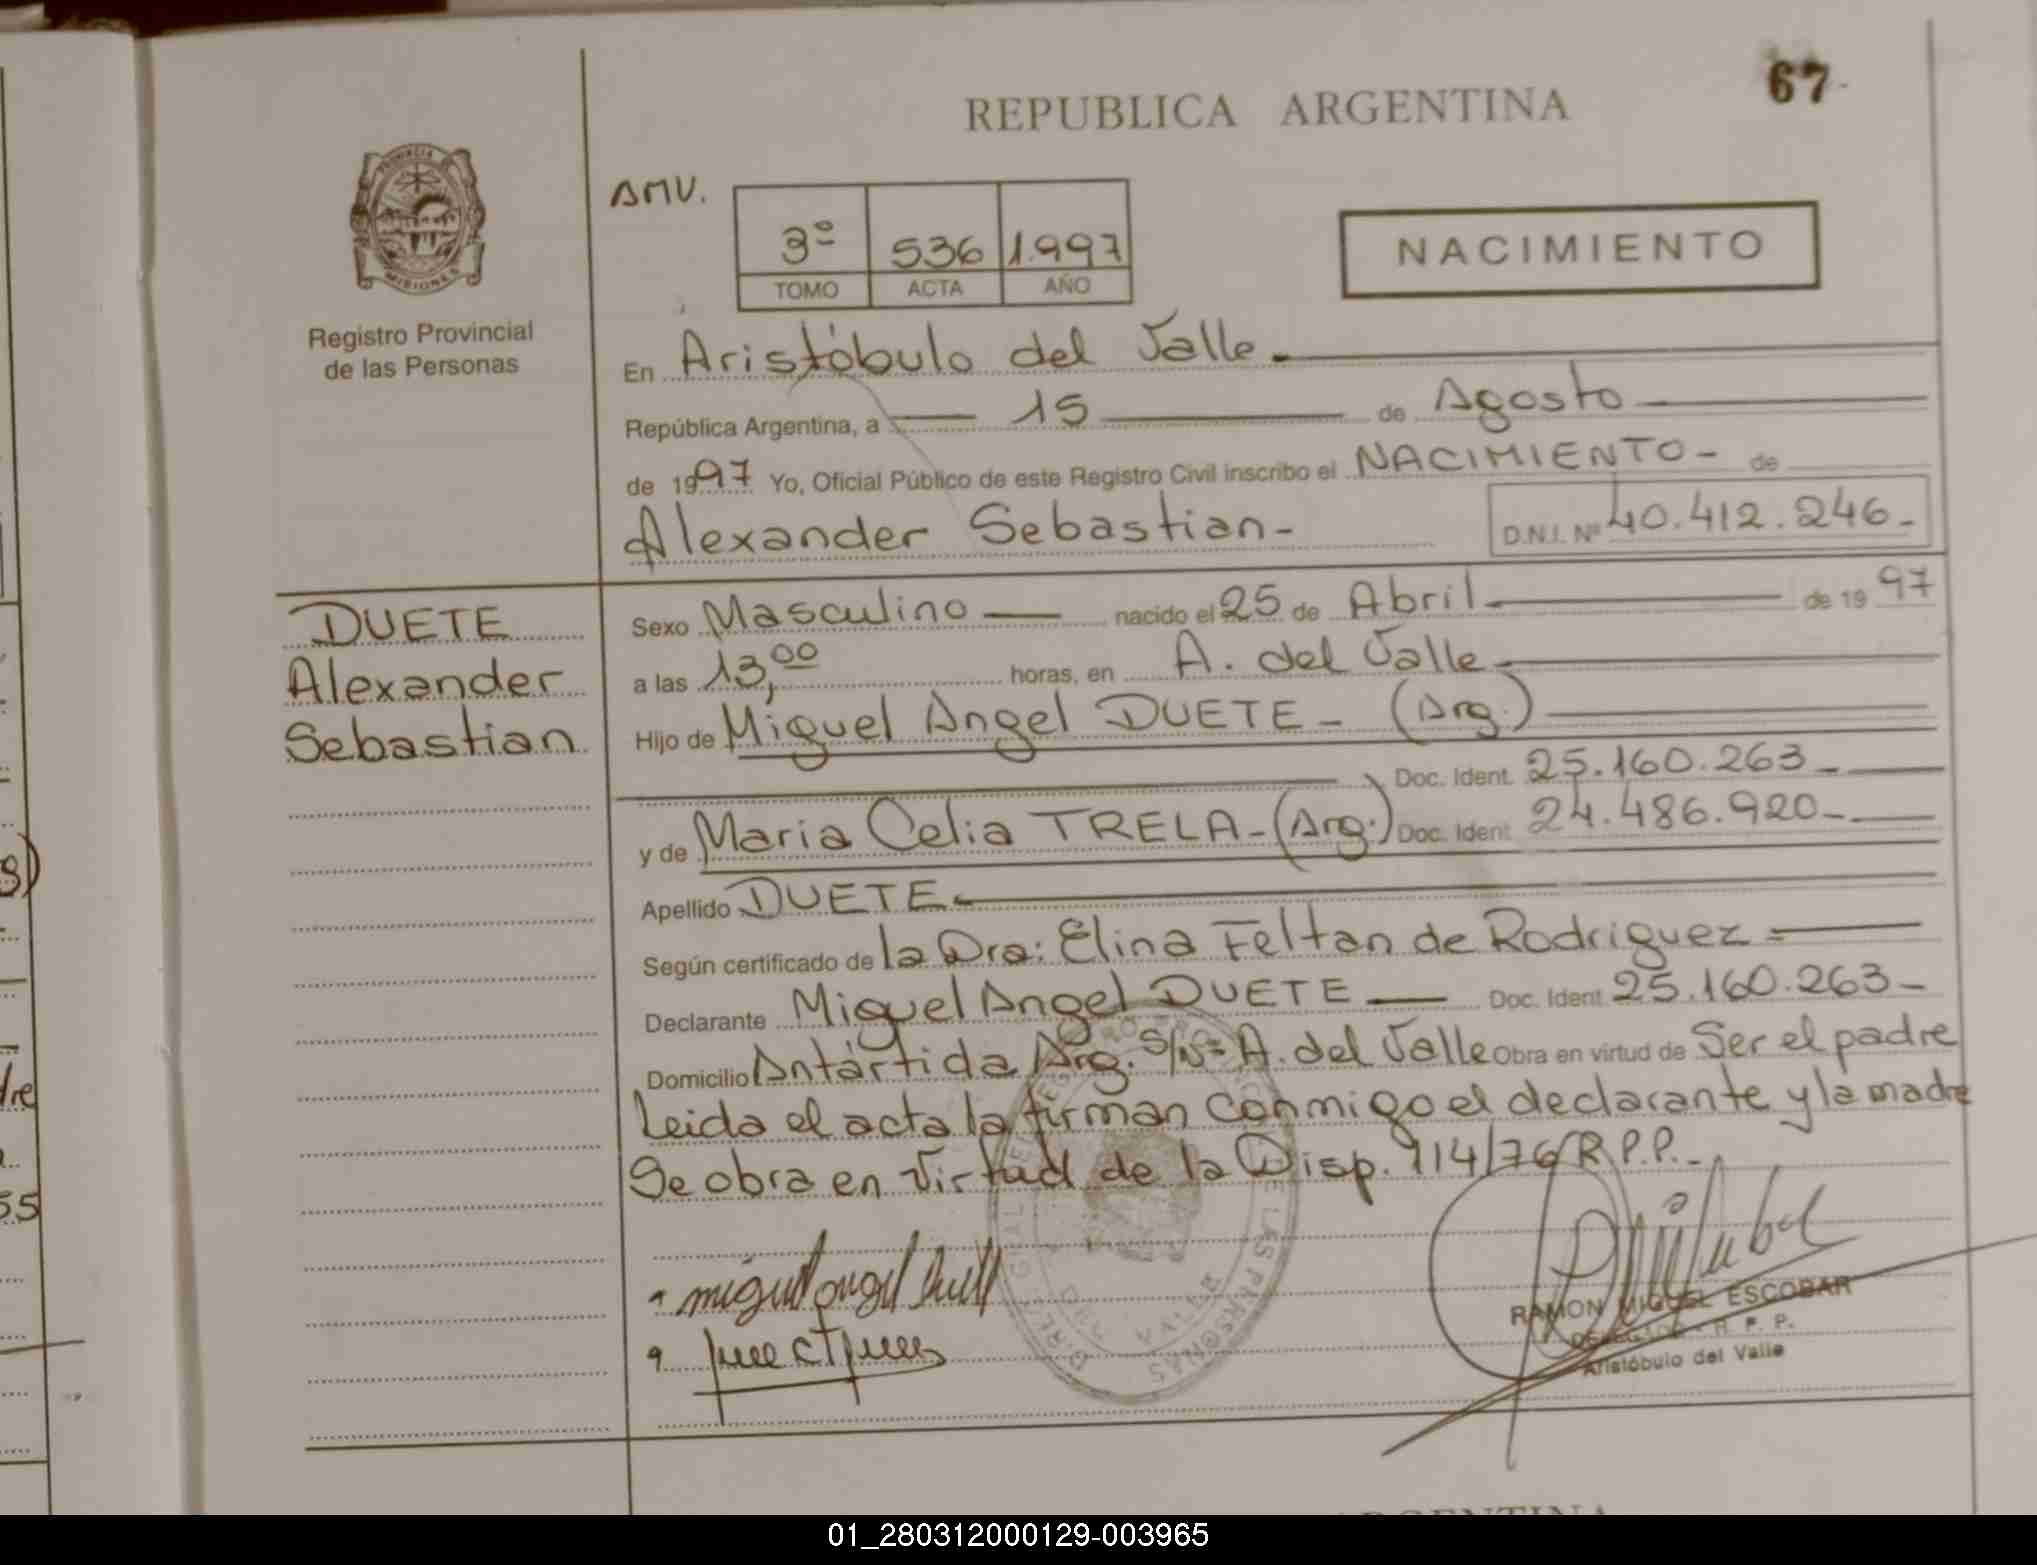 67
REPUBLICA ARGENTINA
PROVINCIA
MISIONES
Registro Provincial
de las Personas
AMV.
3º 536 1.997
TOMO ACTA AÑO
NACIMIENTO
En Aristóbulo del Valle.
República Argentina, a 15 de Agosto
de 1997 Yo, Oficial Público de este Registro Civil inscribo el NACIMIENTO - de
Alexander Sebastian- D.N.I. Nº 40.412.246-
DUETE
Alexander
Sebastian
Sexo Masculino nacido el 25 de Abril de 1997
a las 13,00 horas, en A. del Valle
Hijo de Miguel Angel DUETE - (Arg.)
Doc. Ident. 25.160.263-
y de Maria Celia TRELA-(Arg.) Doc. Ident 24.486.920-
Apellido DUETE
Según certificado de la Dra: Elina Feltan de Rodriguez
Declarante Miguel Angel DUETE Doc. Ident 25.160.263-
Domicilio Antártida Arg. S/Nº A. del Valle Obra en virtud de Ser el padre
Leida el acta la firman conmigo el declarante y la madre
Se obra en virtud de la Disp. 914/76 R.P.P.-
miguel angel
RAMON MIGUEL ESCOBAR
DELEGADO - R. P. P.
Aristóbulo del Valle
01_280312000129-003965